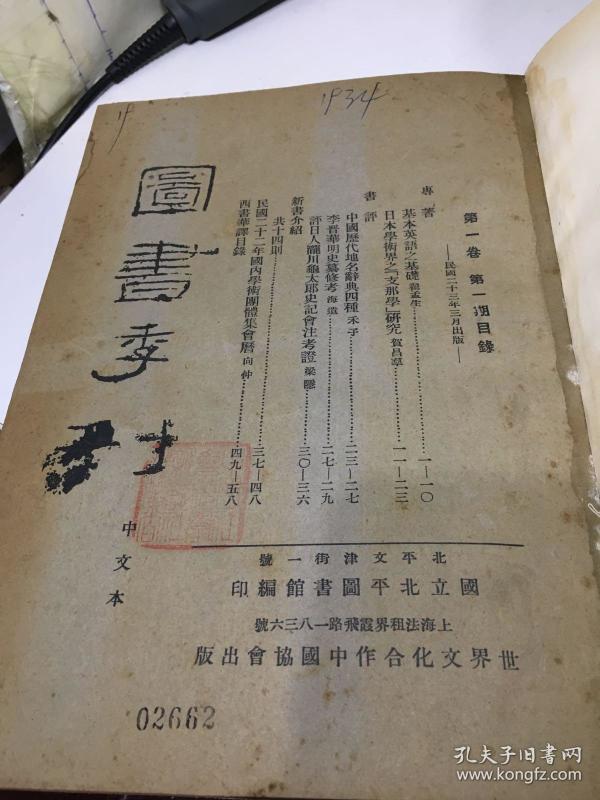 1934
圖書季刊
中文本
第一卷 第一期目錄
——民國二十三年三月出版——
專著
基本英語之基礎 翟孟生……一—一〇
日本學術界之「支那學」研究 賀昌羣……一一—二三
書評
中國歷代地名辭典四種 禾子……二三—二七
李晋華明史纂修考 海遺……二七—二九
評日人瀧川龜太郎史記會注考證 梁隱……三〇—三六
新書介紹
共十四則……三七—四八
民國二十二年國内學術團體集會曆 向仲
西書華譯目錄……四九—五八
號一街津文平北
印編館書圖平北立國
號六三八一路飛霞界租法海上
版出會協國中作合化文界世
02662
孔夫子旧书网
www.kongfz.com